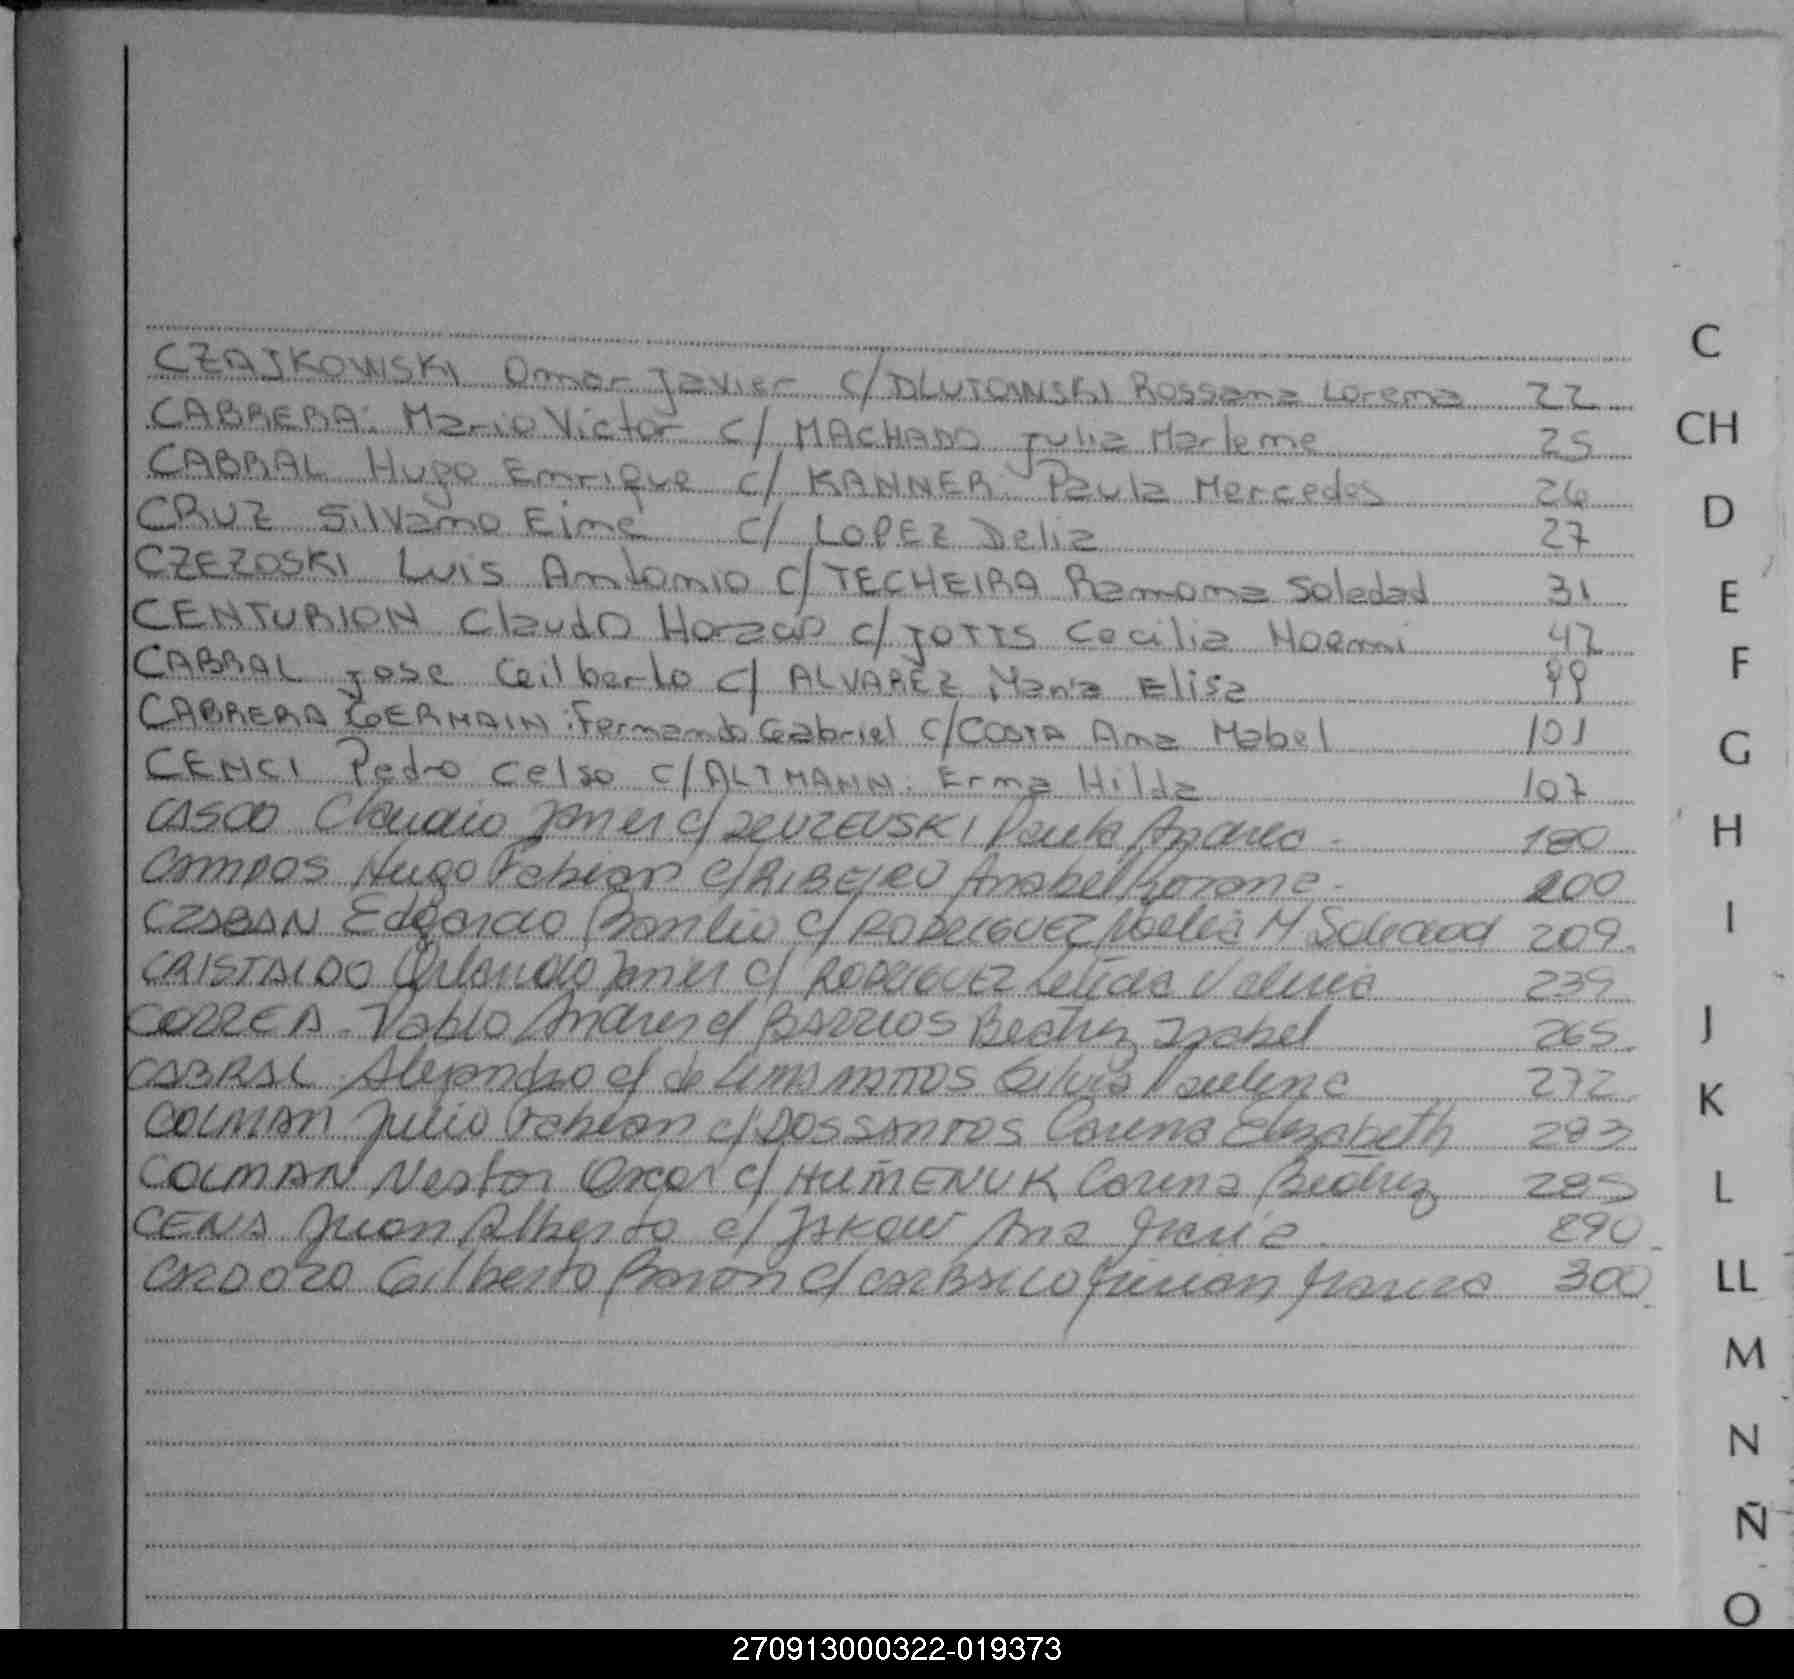 CZAJKOWSKI Omar Javier c/ DLUTOWSKI Rossana Lorena 22
CABRERA: Mario Victor c/ MACHADO Julia Marlene 25
CABRAL Hugo Enrique c/ KANNER Paula Mercedes 26
CRUZ Silvano Eine c/ LOPEZ Delia 27
CZEZOSKI Luis Antonio c/ TECHEIRA Ramona Soledad 31
CENTURION Claudo Horacio c/ JOTIS Cecilia Noemi 47
CABRAL Jose Gilberto c/ ALVAREZ Maria Elisa 99
CABRERA GERMAIN: Fernando Gabriel c/ COSTA Ana Mabel 101
CENCI Pedro Celso c/ ALTMANN. Erma Hilda 107
CASCO Claudio Javier c/ Paula Andrea - 180
CAMPOS Hugo Fabian c/ RIBEIRO Anabel 200
CZABAN Edgardo c/ RODRIGUEZ Noelia M Soledad 209.
CRISTALDO Orlando Javier c/ RODRIGUEZ Leticia Valeria 239
CORREA. Pablo Andres c/ BARRIOS Beatriz Isabel 265.
CABRAL Alejandro c/ de Lima MATTOS Silvia Paulina 272
COLMAN Julio Fabian c/ DOS SANTOS Carina Elizabeth 283
COLMAN Nestor Oscar c/ HUMENUK Carina Beatriz 285
CENA Juan Alberto c/ JAKOW Ana Maria. 290
CARDOZO Gilberto Ramon c/ Mirian 300
C
CH
D
E
F
G
H
I
J
K
L
LL
M
N
Ñ
O
270913000322-019373